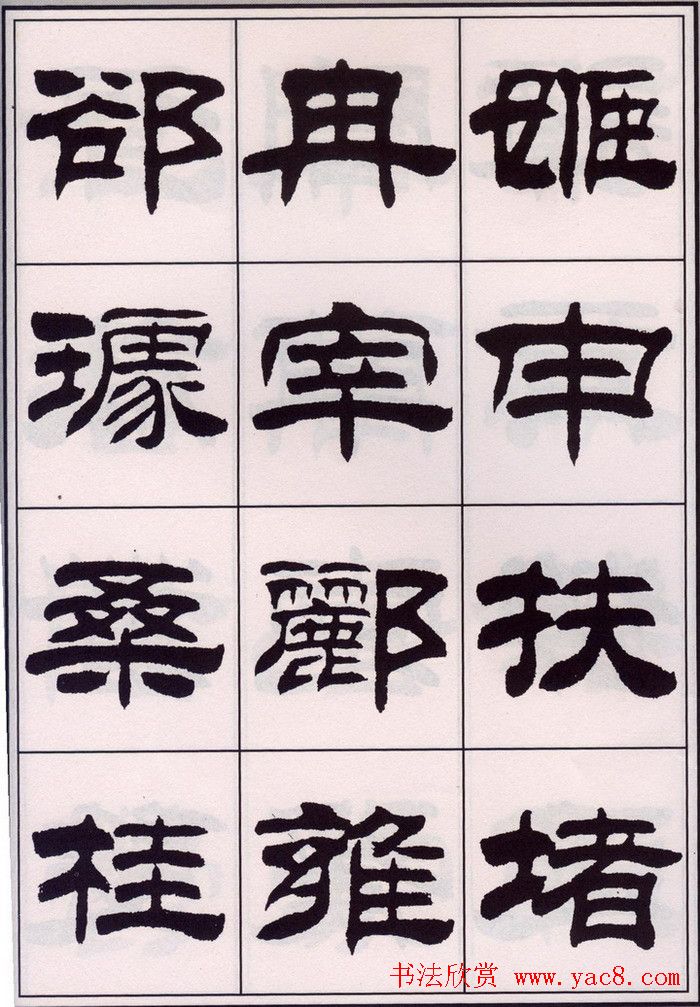 姬申扶堵
冉宰酈雍
郤璩桑桂
书法欣赏 www.yac8.com